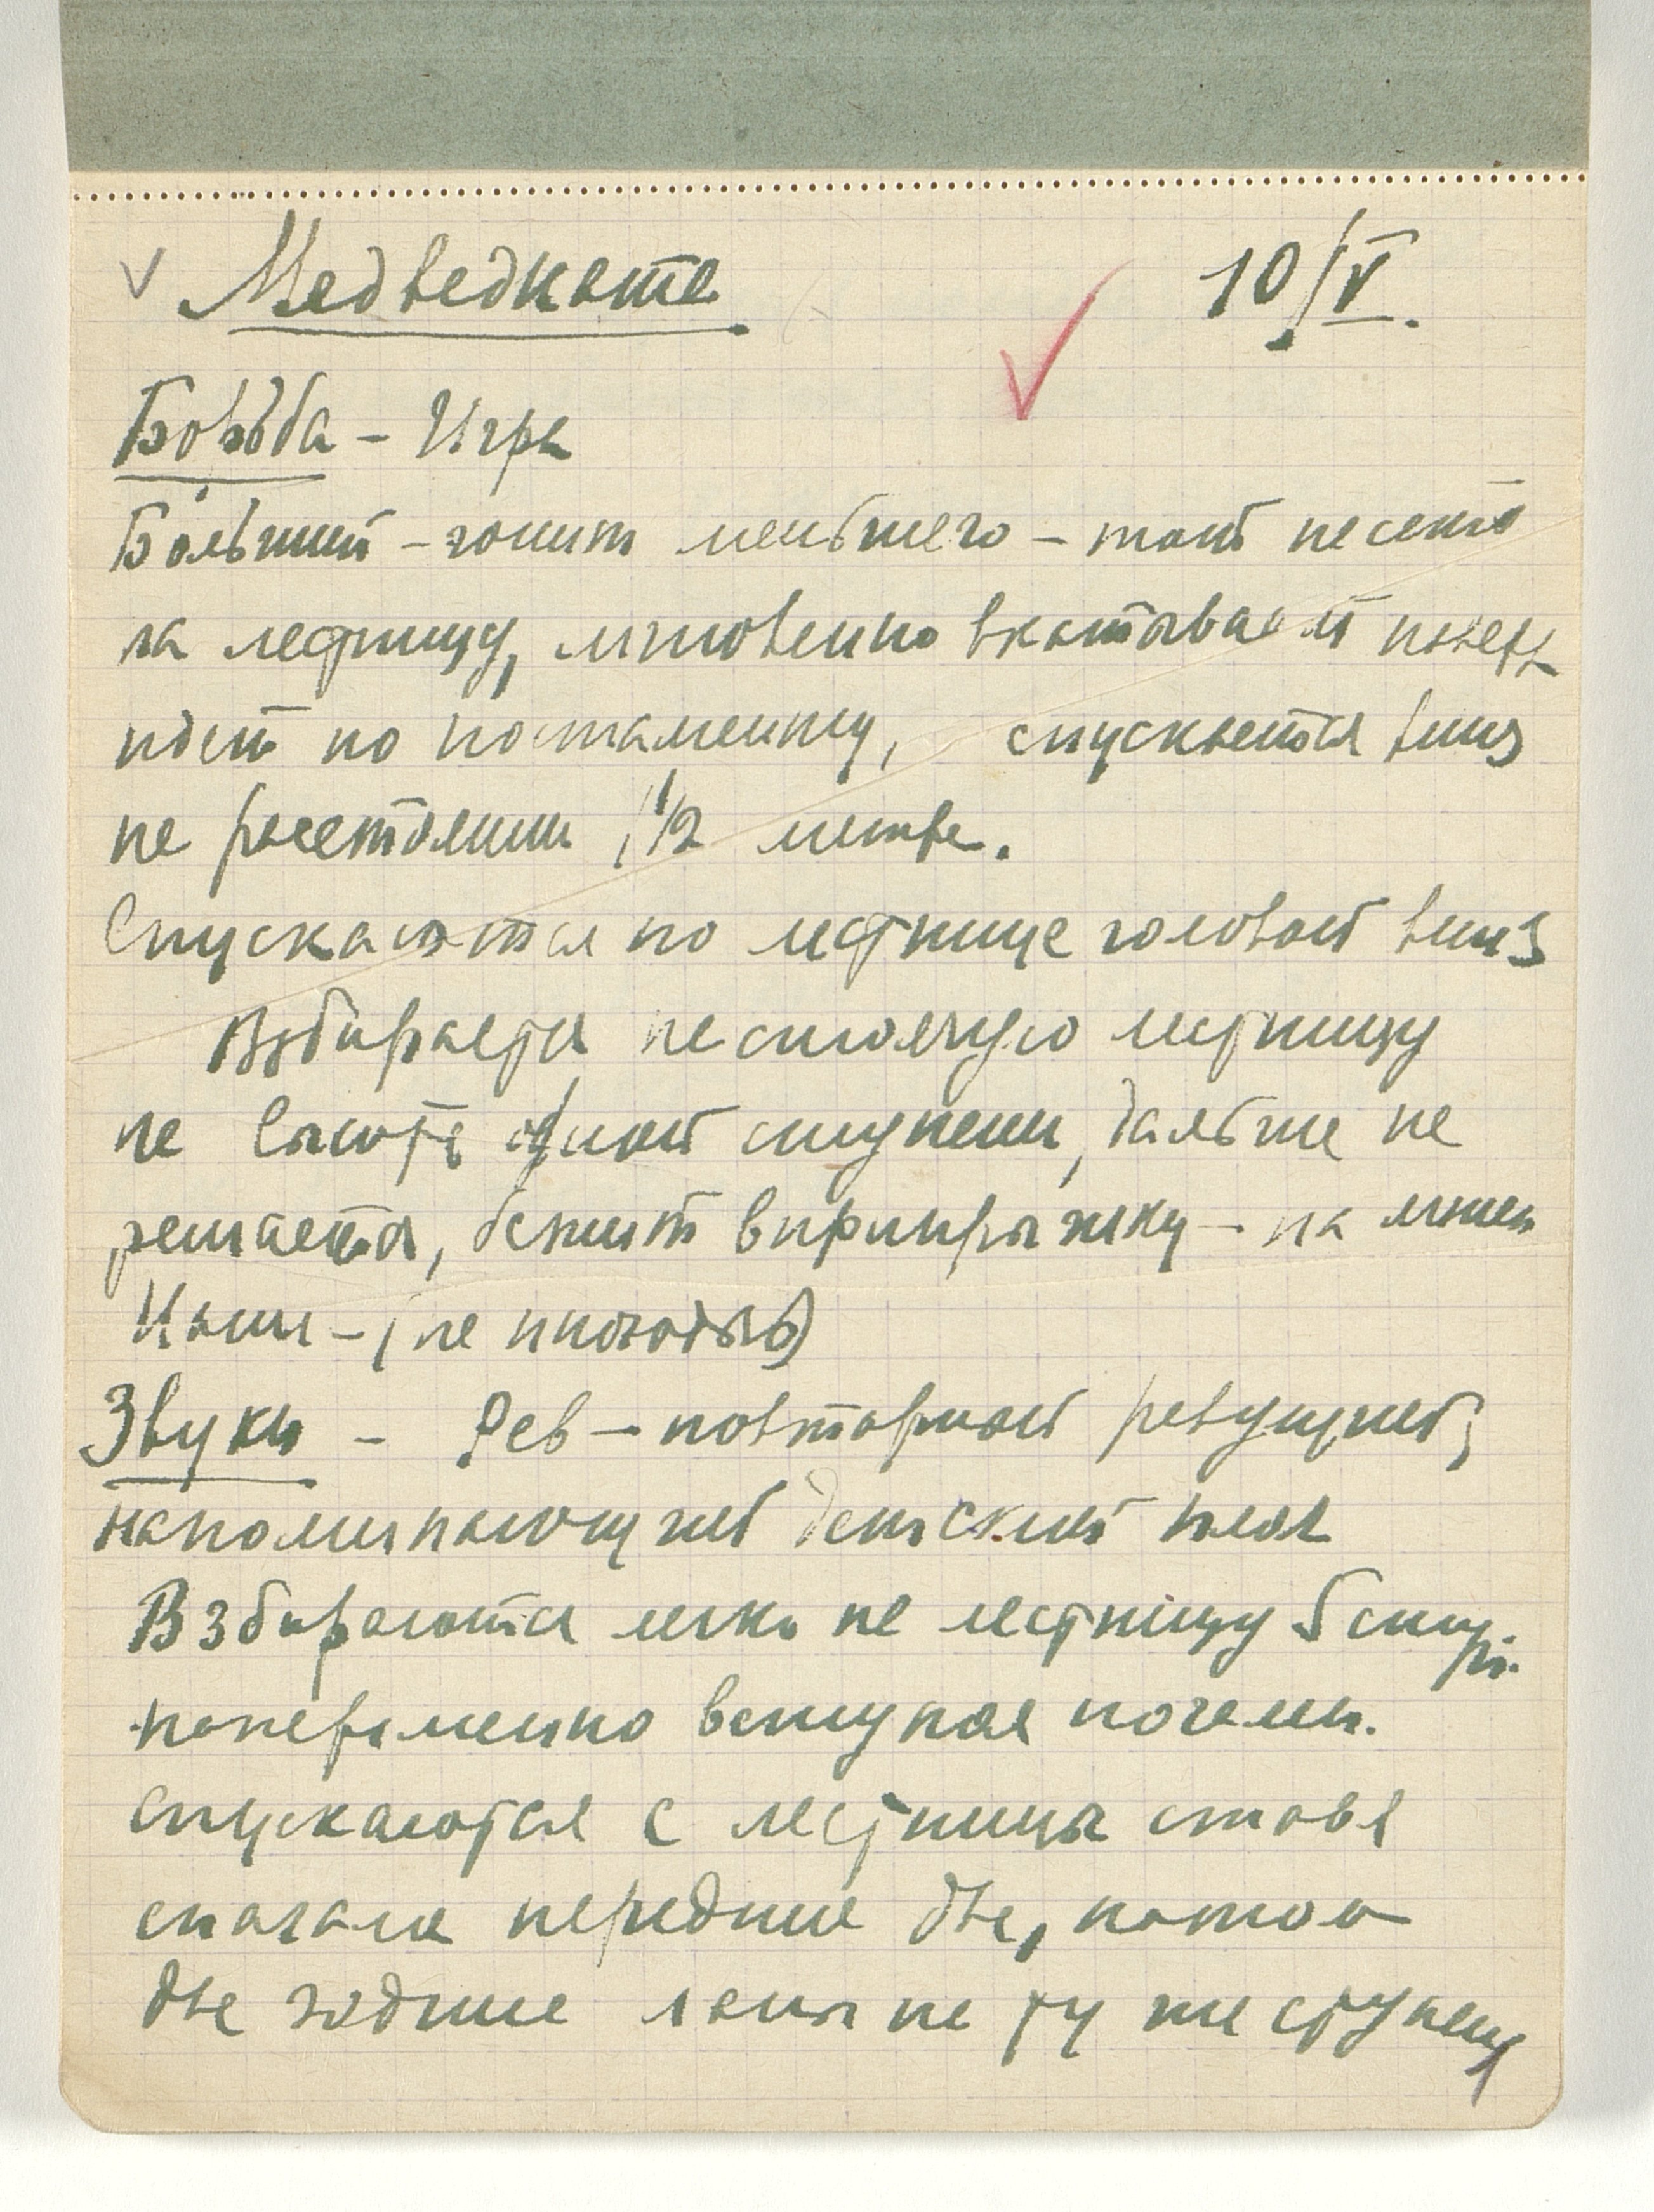 Медвежата 10/V.
Борьба – Игра
Больший – гонит меньшего – тот на
на лестницу, мгновенно вверх
идет по постаменту, спускается вниз
на расстоянии 1 1/2 метра.
Спускаются по лестнице головой вниз
Взбирается на стоячую лестницу
на высоту одной ступени, дальше не
решается, бежит вприпрыжку – на
– (не
Звуки – Рев – повторный ревущий,
напоминающий детский плач
Взбираются легко на лестницу 5 ступ.
попеременно вступая ногами.
Спускаются с лестницы ставя
сначала передние две, потом
две задние лапы на ту же ступень